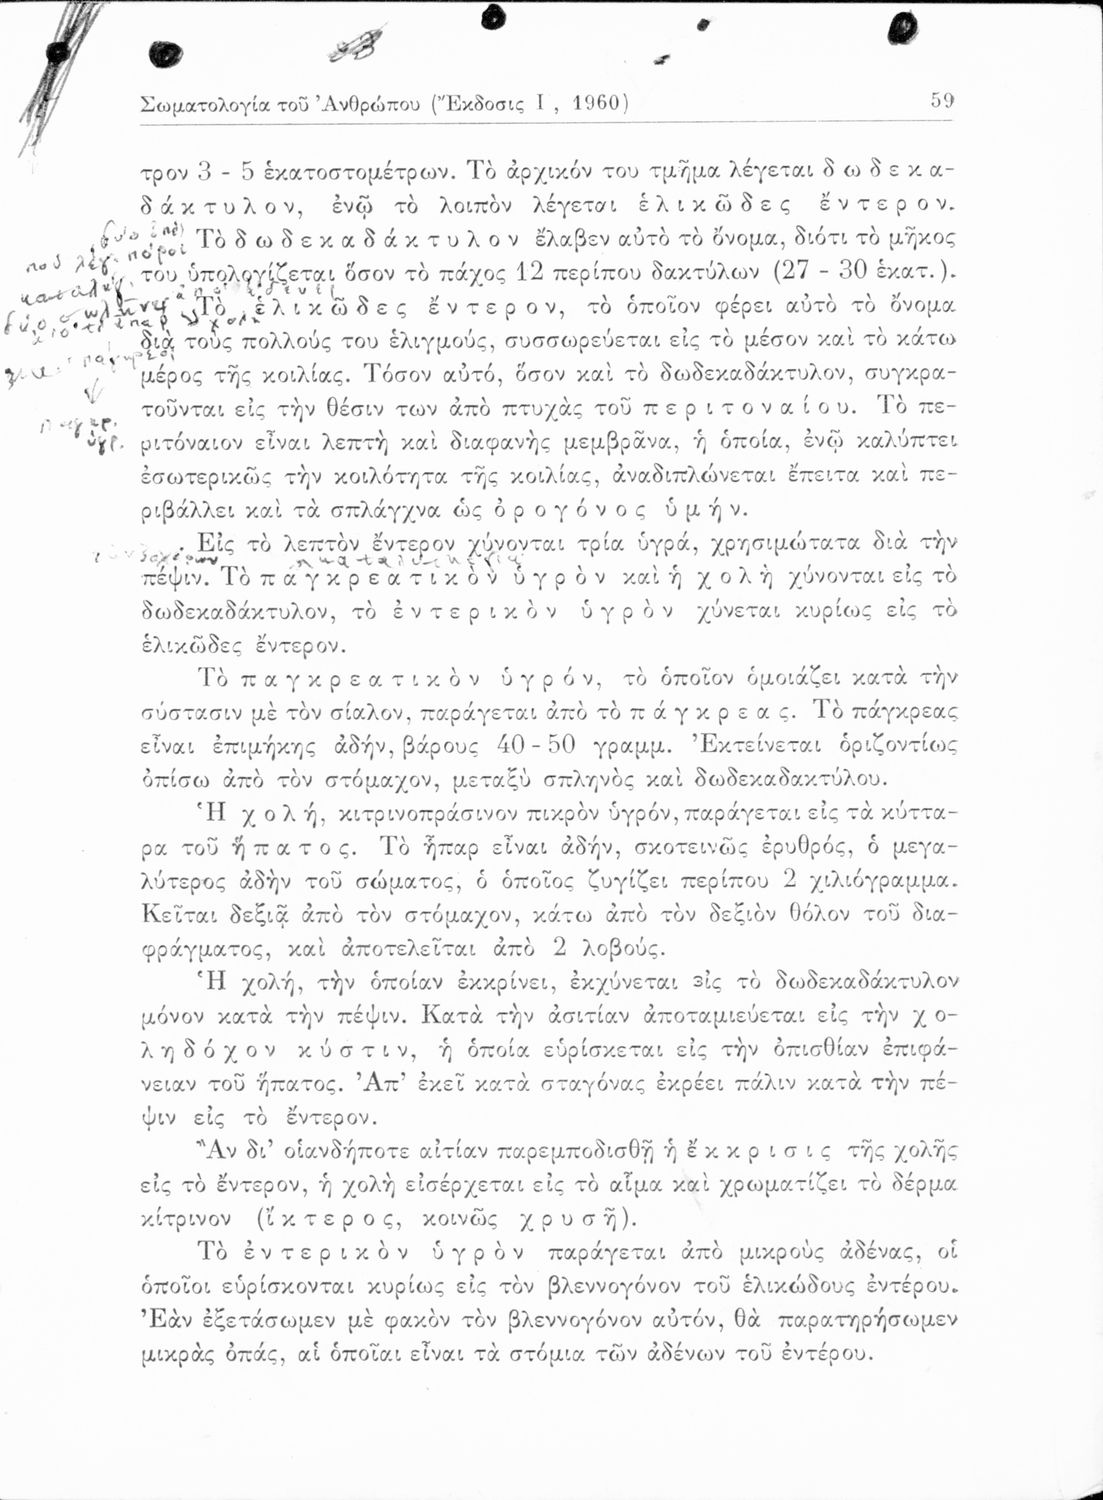 Σωματολογία τοῦ Ἀνθρώπου (Ἔκδοσις Ι , 1960) 59
τρον 3 - 5 ἑκατοστομέτρων. Τὸ ἀρχικόν του τμῆμα λέγεται δωδεκα-
δάκτυλον, ἐνῷ τὸ λοιπὸν λέγεται ἑλικῶδες ἔντερον.
Τὸ δωδεκαδάκτυλον ἔλαβεν αὐτὸ τὸ ὄνομα, διότι τὸ μῆκος
του ὑπολογίζεται ὅσον τὸ πάχος 12 περίπου δακτύλων (27 - 30 ἑκατ.).
Τὸ ἑλικῶδες ἔντερον, τὸ ὁποῖον φέρει αὐτὸ τὸ ὄνομα
διὰ τοὺς πολλούς του ἑλιγμούς, συσσωρεύεται εἰς τὸ μέσον καὶ τὸ κάτω
μέρος τῆς κοιλίας. Τόσον αὐτό, ὅσον καὶ τὸ δωδεκαδάκτυλον, συγκρα-
τοῦνται εἰς τὴν θέσιν των ἀπὸ πτυχὰς τοῦ περιτοναίου. Τὸ πε-
ριτόναιον εἶναι λεπτὴ καὶ διαφανὴς μεμβρᾶνα, ἡ ὁποία, ἐνῷ καλύπτει
ἐσωτερικῶς τὴν κοιλότητα τῆς κοιλίας, ἀναδιπλώνεται ἔπειτα καὶ πε-
ριβάλλει καὶ τὰ σπλάγχνα ὡς ὀρογόνος ὑμήν.
Εἰς τὸ λεπτὸν ἔντερον χύνονται τρία ὑγρά, χρησιμώτατα διὰ τὴν
πέψιν. Τὸ παγκρεατικὸν ὑγρὸν καὶ ἡ χολὴ χύνονται εἰς τὸ
δωδεκαδάκτυλον, τὸ ἐντερικὸν ὑγρὸν χύνεται κυρίως εἰς τὸ
ἑλικῶδες ἔντερον.
Τὸ παγκρεατικὸν ὑγρόν, τὸ ὁποῖον ὁμοιάζει κατὰ τὴν
σύστασιν μὲ τὸν σίαλον, παράγεται ἀπὸ τὸ πάγκρεας. Τὸ πάγκρεας
εἶναι ἐπιμήκης ἀδήν, βάρους 40 - 50 γραμμ. Ἐκτείνεται ὁριζοντίως
ὀπίσω ἀπὸ τὸν στόμαχον, μεταξὺ σπληνὸς καὶ δωδεκαδακτύλου.
Ἡ χολή, κιτρινοπράσινον πικρὸν ὑγρόν, παράγεται εἰς τὰ κύττα-
ρα τοῦ ἥπατος. Τὸ ἧπαρ εἶναι ἀδήν, σκοτεινῶς ἐρυθρός, ὁ μεγα-
λύτερος ἀδὴν τοῦ σώματος, ὁ ὁποῖος ζυγίζει περίπου 2 χιλιόγραμμα.
Κεῖται δεξιᾷ ἀπὸ τὸν στόμαχον, κάτω ἀπὸ τὸν δεξιὸν θόλον τοῦ δια-
φράγματος, καὶ ἀποτελεῖται ἀπὸ 2 λοβούς.
Ἡ χολή, τὴν ὁποίαν ἐκκρίνει, ἐκχύνεται εἰς τὸ δωδεκαδάκτυλον
μόνον κατὰ τὴν πέψιν. Κατὰ τὴν ἀσιτίαν ἀποταμιεύεται εἰς τὴν χο-
ληδόχον κύστιν, ἡ ὁποία εὑρίσκεται εἰς τὴν ὀπισθίαν ἐπιφά-
νειαν τοῦ ἥπατος. Ἀπ' ἐκεῖ κατὰ σταγόνας ἐκρέει πάλιν κατὰ τὴν πέ-
ψιν εἰς τὸ ἔντερον.
Ἂν δι' οἱανδήποτε αἰτίαν παρεμποδισθῇ ἡ ἔκκρισις τῆς χολῆς
εἰς τὸ ἔντερον, ἡ χολὴ εἰσέρχεται εἰς τὸ αἷμα καὶ χρωματίζει τὸ δέρμα
κίτρινον (ἴκτερος, κοινῶς χρυσῆ).
Τὸ ἐντερικὸν ὑγρὸν παράγεται ἀπὸ μικροὺς ἀδένας, οἱ
ὁποῖοι εὑρίσκονται κυρίως εἰς τὸν βλεννογόνον τοῦ ἑλικώδους ἐντέρου.
Ἐὰν ἐξετάσωμεν μὲ φακὸν τὸν βλεννογόνον αὐτόν, θὰ παρατηρήσωμεν
μικρὰς ὀπάς, αἱ ὁποῖαι εἶναι τὰ στόμια τῶν ἀδένων τοῦ ἐντέρου.